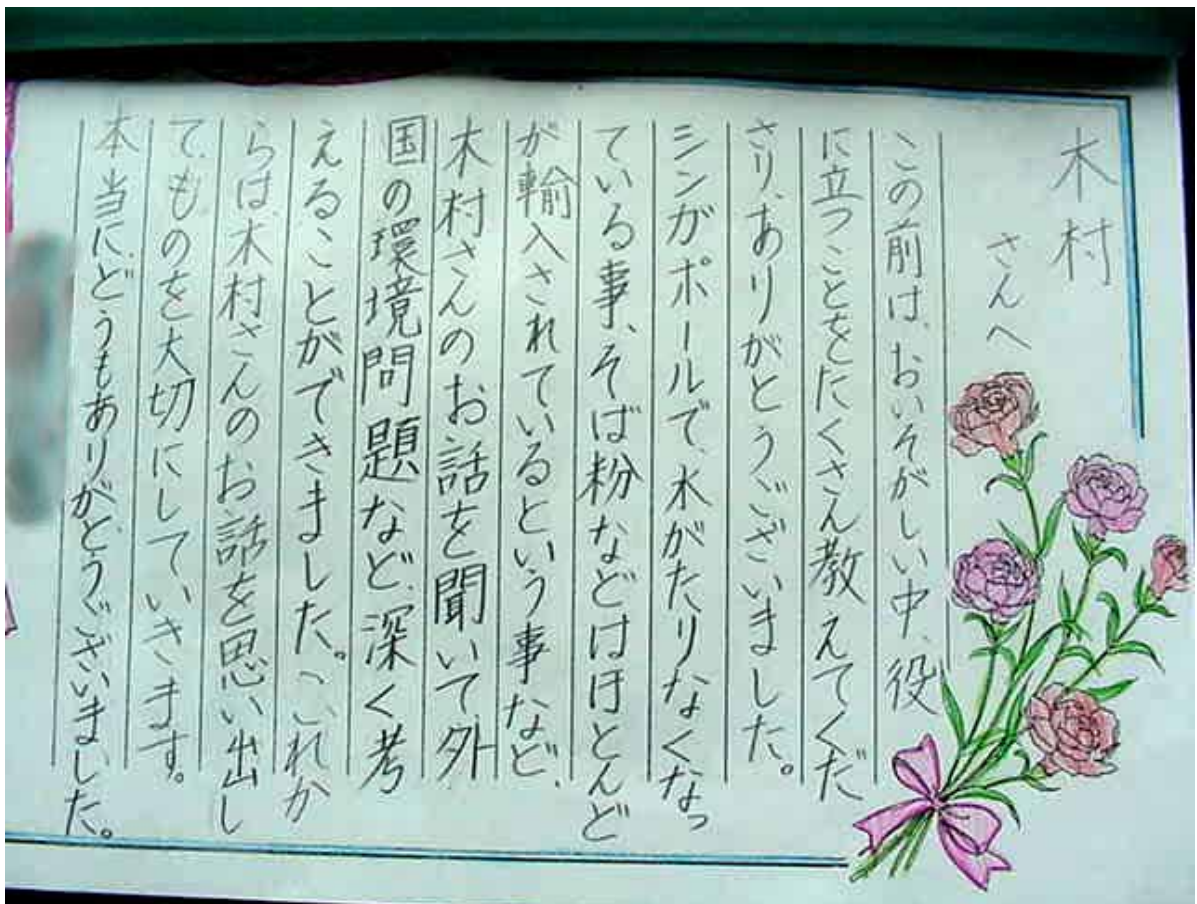 木村
さんへ
この前は、おいそがしい中、役
に立つことをたくさん教えてくだ
さり、ありがとうございました。
シンガポールで、水がたりなくなっ
ている事、そば粉などはほとんど
が輸入されているという事など、
木村さんのお話を聞いて外
国の環境問題など、深く考
えることができました。これか
らは、木村さんのお話を思い出し
て、ものを大切にしていきます。
本当に、どうもありがとうございました。